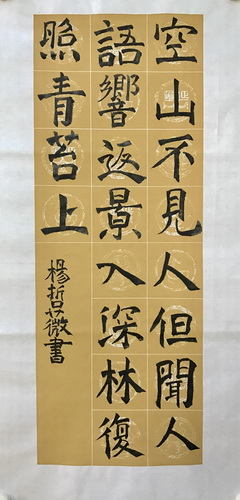 空山不見人但聞人
語響返景入深林復
照青苔上
楊哲微書